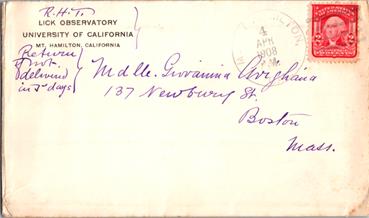 R.H.T.
LICK OBSERVATORY
UNIVERSITY OF CALIFORNIA
MT. HAMILTON, CALIFORNIA
Return
if not
delivered
in 5 days
HAMILTON,
4
APR
1908
Mdlle. Giovanina
137 Newbury St.
Boston
Mass.
2 2